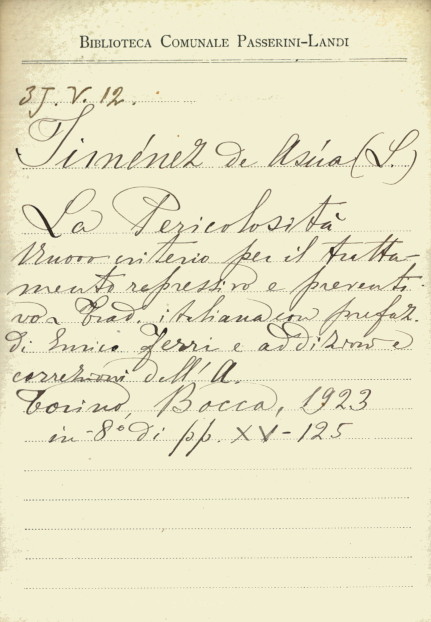 BIBLIOTECA COMUNALE PASSERINI-LANDI
3J. V. 12.
Jiménez de Asúa (L.)
La Pericolosità
Nuovo criterio per il tratta-
mento repressivo e preventi-
vo. Trad. italiana con prefaz.
di Enrico Ferri e addizioni e
correzioni dell'A.
Torino, Bocca, 1923
in-8º di pp. XV-125